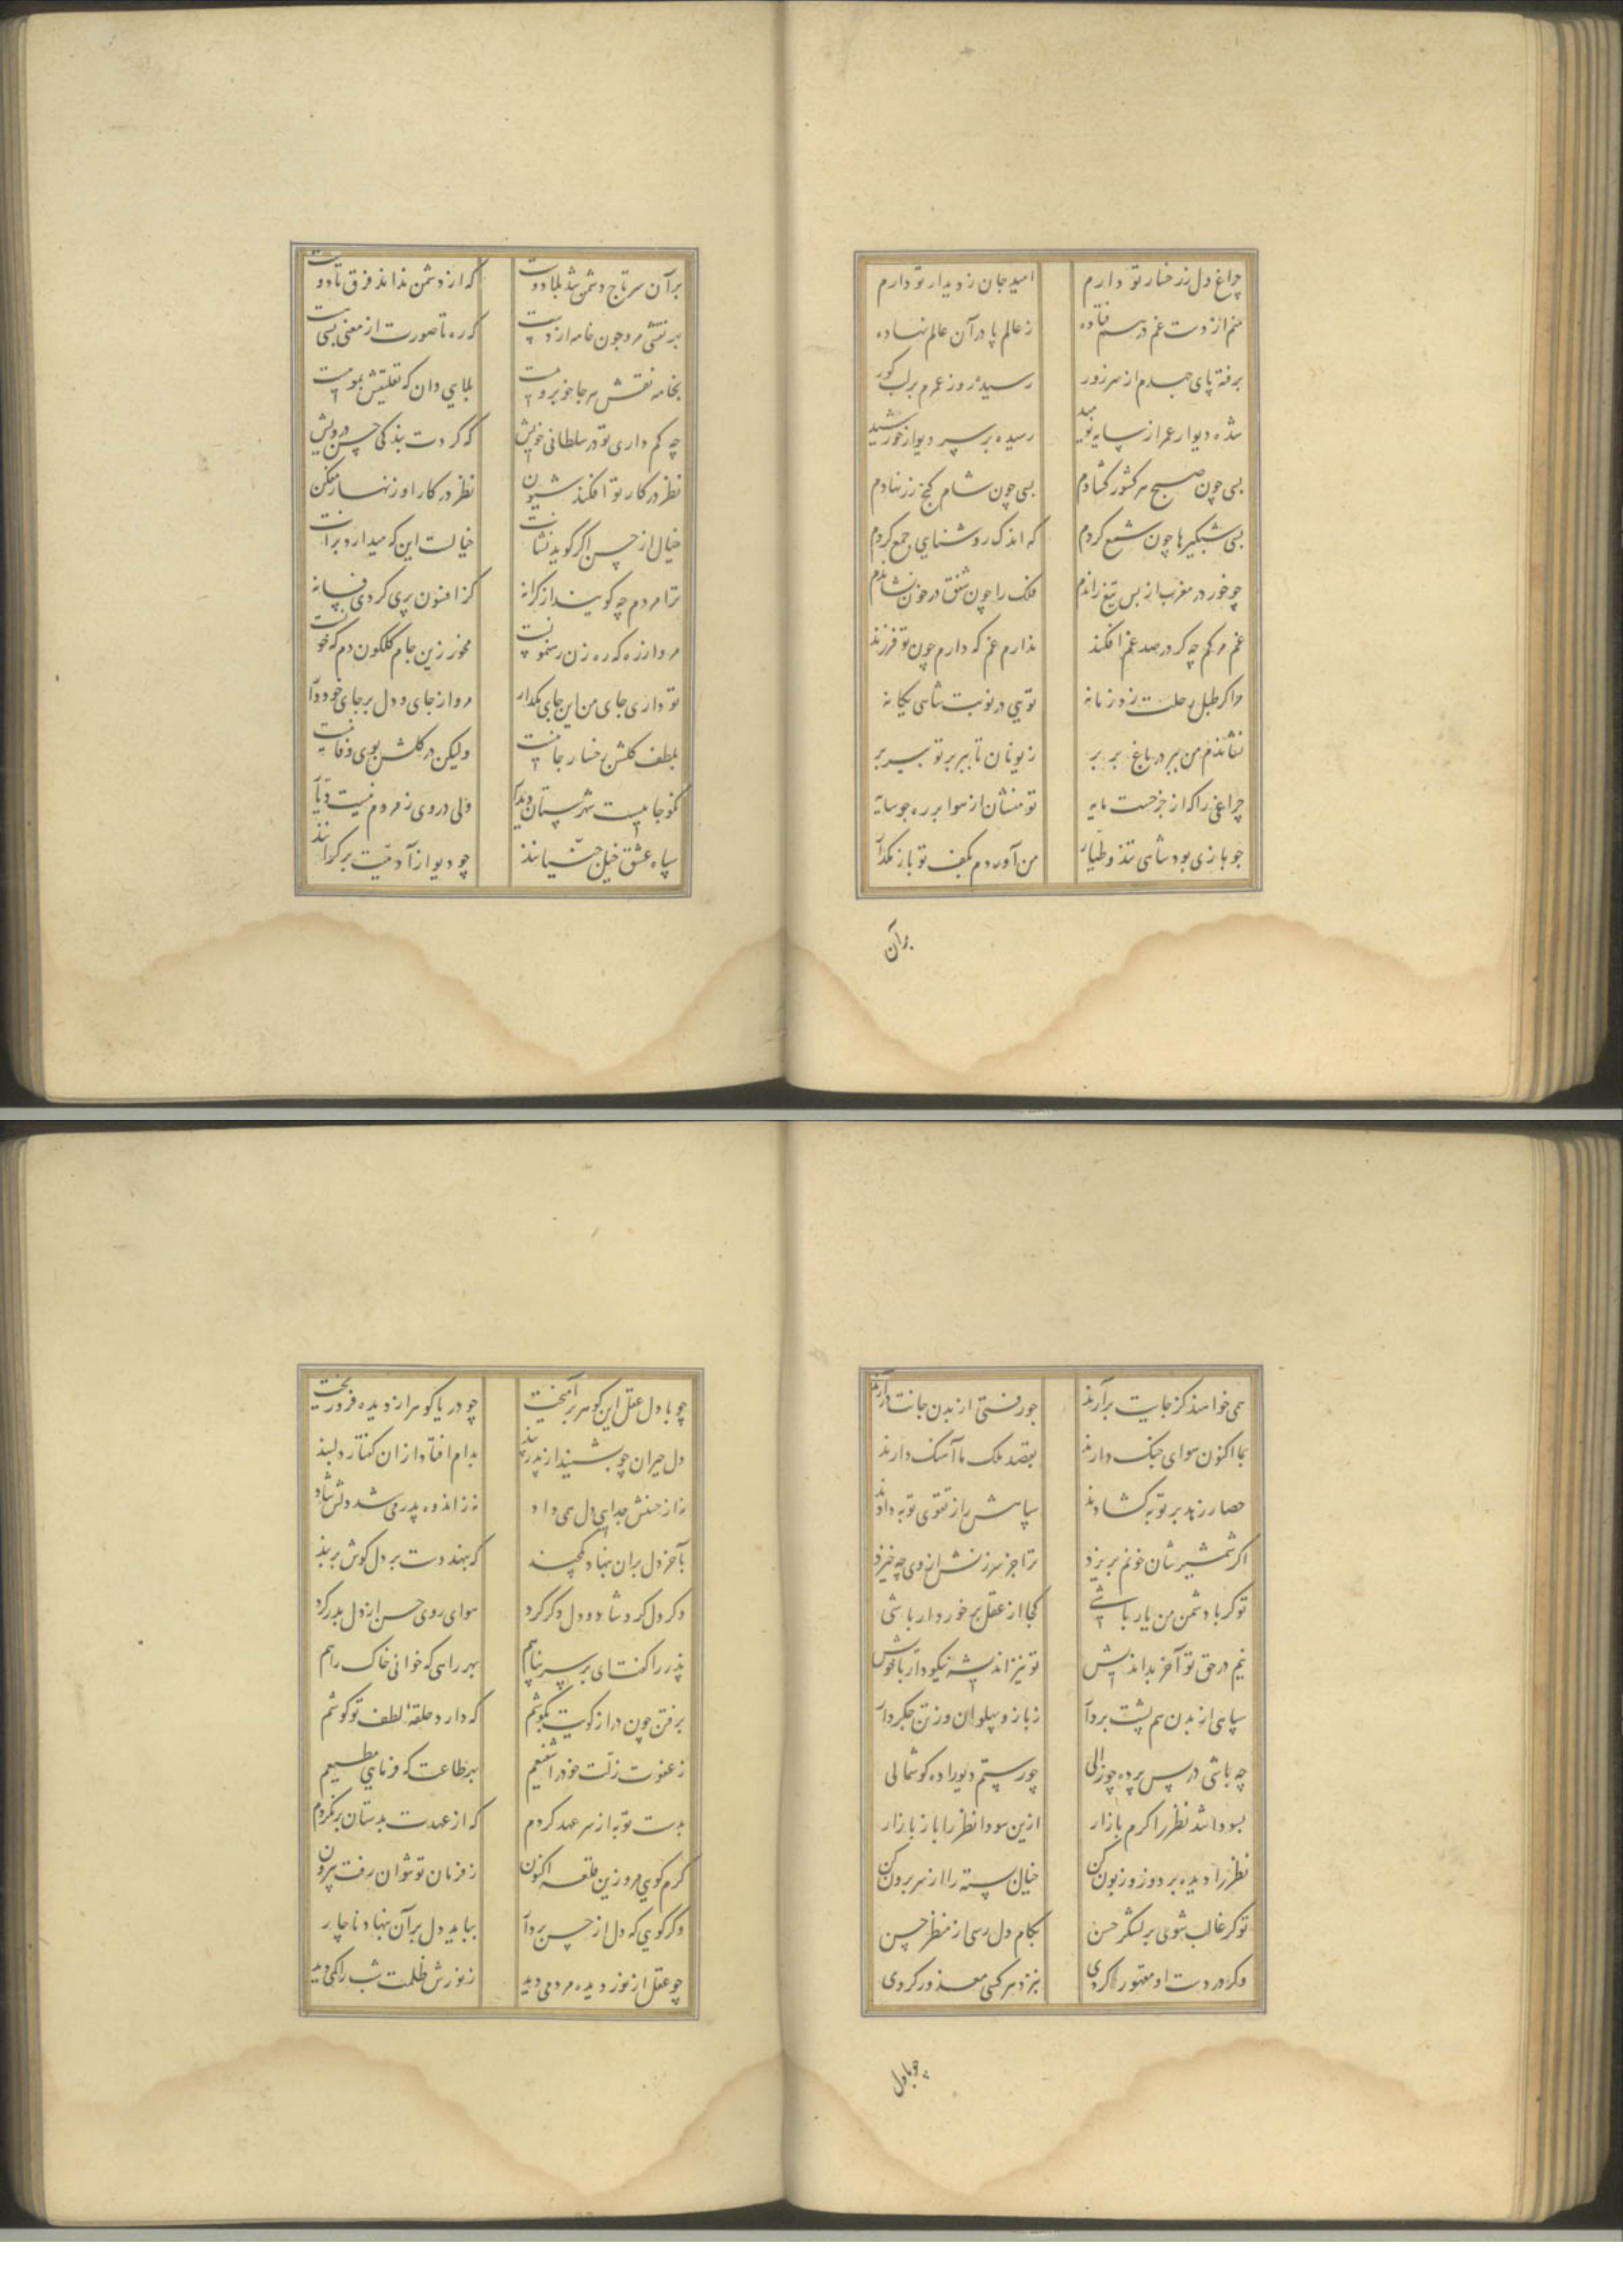 چراغ دل ز رخسار تو دارم امید جان ز دیدار تو دارم
منم از دست غم در سر فتاده ز عالم پا در آن عالم نهاده
برفته پای جهدم از سر زور رسیده روز عمرم بر لب کور
شده دیوار عمر از سایه نومید رسیده بر سر دیوار خورشید
بسی چون صبح هر کشور کشادم بسی چون شام کنج زر نهادم
بسی شبکیرها چون شمع کردم که اندک روشنایی جمع کردم
چو خور در مغرب از بس تیغ راندم فلک را چون شفق در خون نشاندم
غم مرکم چه کر در صد غم افکند ندارم غم که دارم چون تو فرزند
مرا کر طبل رحلت زد زمانه تویی در نوبت شاهی یکانه
نشاندم من ببر در باغ بربر ز یونان تا ببربر تو بسر بر
چراغی را که از جز حست مایه تو منشان از هوا بر ره جو سایه
جو بازی بود شاهی تند و طیار من آوردم بکف تو باز مکذار
بر آن
بر آن سر تاج دشمن شد بلا دوست که از دشمن نداند فرق تا دوست
بهر نقشی مرو چون خامه از دست که ره تا صورت از معنی بسی است
بخامه نقش هر جا خوبروییست بلایی دان که تعلیقش بموییست
چه کم داری تو در سلطانی خویش که کردت بندکی حسن درویش
نظر در کار تو افکند شیون نظر در کار او زنهار مفکن
خیال از حسن اکر کوید نشانت خیالست این که میدارد بر آنت
ترا مردم چه کویند از کرانه کز افسون پری کردی فسانه
مرو از ره که ره زن رهنمونست مخور زین جام کلکون دم که خونست
تو داری جای من این جای مکذار مرو از جای و دل بر جای خود دار
بلطف کلشن رخسار جانیست ولیکن در کلش بوی وفا نیست
نکو جاییست شهرستان دیدار ولی در وی ز مردم نیست دیار
سپاه عشق خیل حسیانند چو دیو از آدمیت بر کرانند
همی خواهند کز جایت برآرند چو رفتی از بدن جانت درآرند
بما اکنون هوای جنک دارند بقصد ملک ما آهنک دارند
حصار زهد بر توبه کشادند سپاهش را ز تقوی توبه دادند
اکر شمشیرشان خونم بریزد ترا جز سرزنش از وی چه خیزد
تو کر با دشمن من یار باشی کجا از عقل برخوردار باشی
نیم در حق تو آخر بداندیش تو نیز اندیشه نیکو دار با خویش
سپاهی از بدن هم پشت بردار ز بازو پهلوان وز تن جکردار
چه باشی در پس پرده چو زالی چو رستم دیو را ده کوشمالی
بسودا شد نظر را کرم بازار ازین سودا نظر را باز باز آر
نظر را دیده بر دوز و زبون کن خیال بسته را از سر برون کن
تو کر غالب شوی بر لشکر حسن بکام دل رسی از منظر حسن
وکر در دست او مقهور کردی بنزد هر کسی معذور کردی
چو با دل
چو با دل عقل این کوهر برآمیخت چو دریا کوهر از دیده فرو ریخت
دل حیران چو بشنید از پدر پند بدام افتاد از آن کفتار دلبند
نه از حسنش جدایی دل همی داد نه ز اندوه پدر می شد دلش شاد
بآخر دل بران بنهاد یکچند که بنهد دست بر دل کوش بر پند
دکر دل کرد شاد و دل دکر کرد هوای روی حسن از دل بدر کرد
پدر را کفت ای بر سر پناهم بهر راهی که خوانی خاک راهم
برفتن چون در از کویت بکوشم که دارد حلقهٔ لطف تو کوشم
ز عفوت زلت خود را شفیعم بهر طاعت که فرمایی مطیعم
بدست توبه از سر عهد کردم که از عهدت بدستان بر نکردم
کرم کویی مرو زین حلقه اکنون ز فرمان تو نتوان رفت بیرون
وکر کویی که دل از حسن بردار بباید دل بر آن بنهاد ناچار
چو عقل از نور دیده مردمی دید ز نورش ظلمت شب را کمی دید